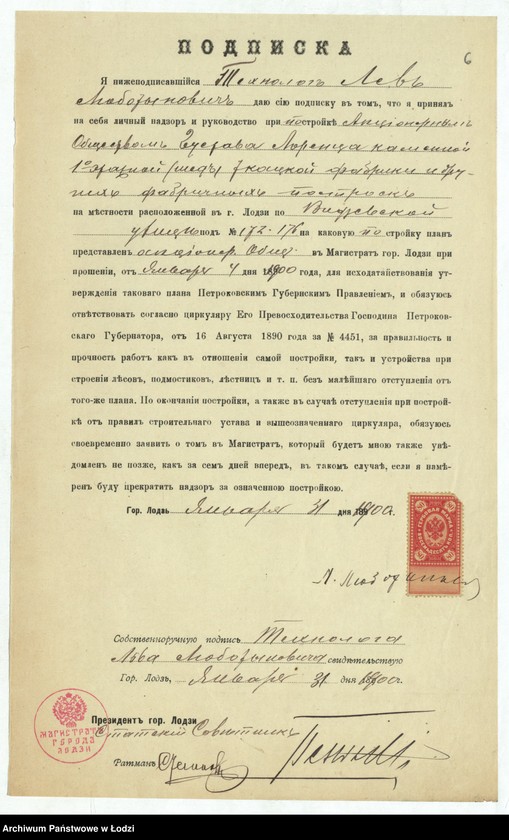 ПОДПИСКА
6
Я нижеподписавшійся Технологъ Левъ
Люботыновичъ даю сію подписку въ томъ, что я принялъ
на себя личный надзоръ и руководство при постройкѣ Акціонернымъ
Обществомъ Густава Лоренца каменной
1º этажной ткацкой фабрики и дру-
гихъ фабричныхъ построекъ
на мѣстности расположенной въ г. Лодзи по Видзевской
улицѣ подъ № 172-176 на каковую постройку планъ
представленъ акціонер. Общ. въ Магистратъ гор. Лодзи при
прошеніи, отъ Января 4 дня 1900 года, для исходатайствованія ут-
вержденія таковаго плана Петроковскимъ Губернскимъ Правленіемъ, и обязуюсь
отвѣтствовать согласно циркуляру Его Превосходительства Господина Петроков-
скаго Губернатора, отъ 16 Августа 1890 года за № 4451, за правильность и
прочность работъ какъ въ отношеніи самой постройки, такъ и устройства при
строеніи лѣсовъ, подмостиковъ, лѣстницъ и т. п. безъ малѣйшаго отступленія отъ
того-же плана. По окончаніи постройки, а также въ случаѣ отступленія при построй-
кѣ отъ правилъ строительнаго устава и вышеозначеннаго циркуляра, обязуюсь
своевременно заявить о томъ въ Магистратъ, который будетъ мною также увѣ-
домленъ не позже, какъ за семь дней впередъ, въ такомъ случаѣ, если я намѣ-
ренъ буду прекратить надзоръ за означенною постройкою.
Гор. Лодзь, Января 31 дня 1900 г.
Собственноручную подпись Технолога
Льва Люботыновича свидѣтельствую
Гор. Лодзь, Января 31 дня 1900 г.
Президентъ гор. Лодзи
Статскій Совѣтникъ
МАГИСТРАТЪ
ГОРОДА
ЛОДЗИ
Ратманъ
Archiwum Państwowe w Łodzi